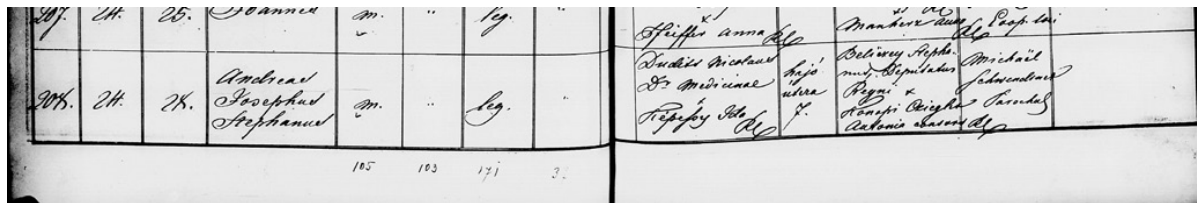 207. 24. 25. Joannes m. " leg.
Pfeiffer Anna RC
Manherz Anna
RC Coop. loci
208. 24. 28. Andreas Josephus Stephanus m. " leg. "
Dudits Nicolaus
Dr Medicinae
Képessy Ida RC
hajó
utcza
7.
Stepha-
nus, Deputatus
Regni +
Antonia RC
Michaël
Schwendtner
Parochus
105 103 171 3